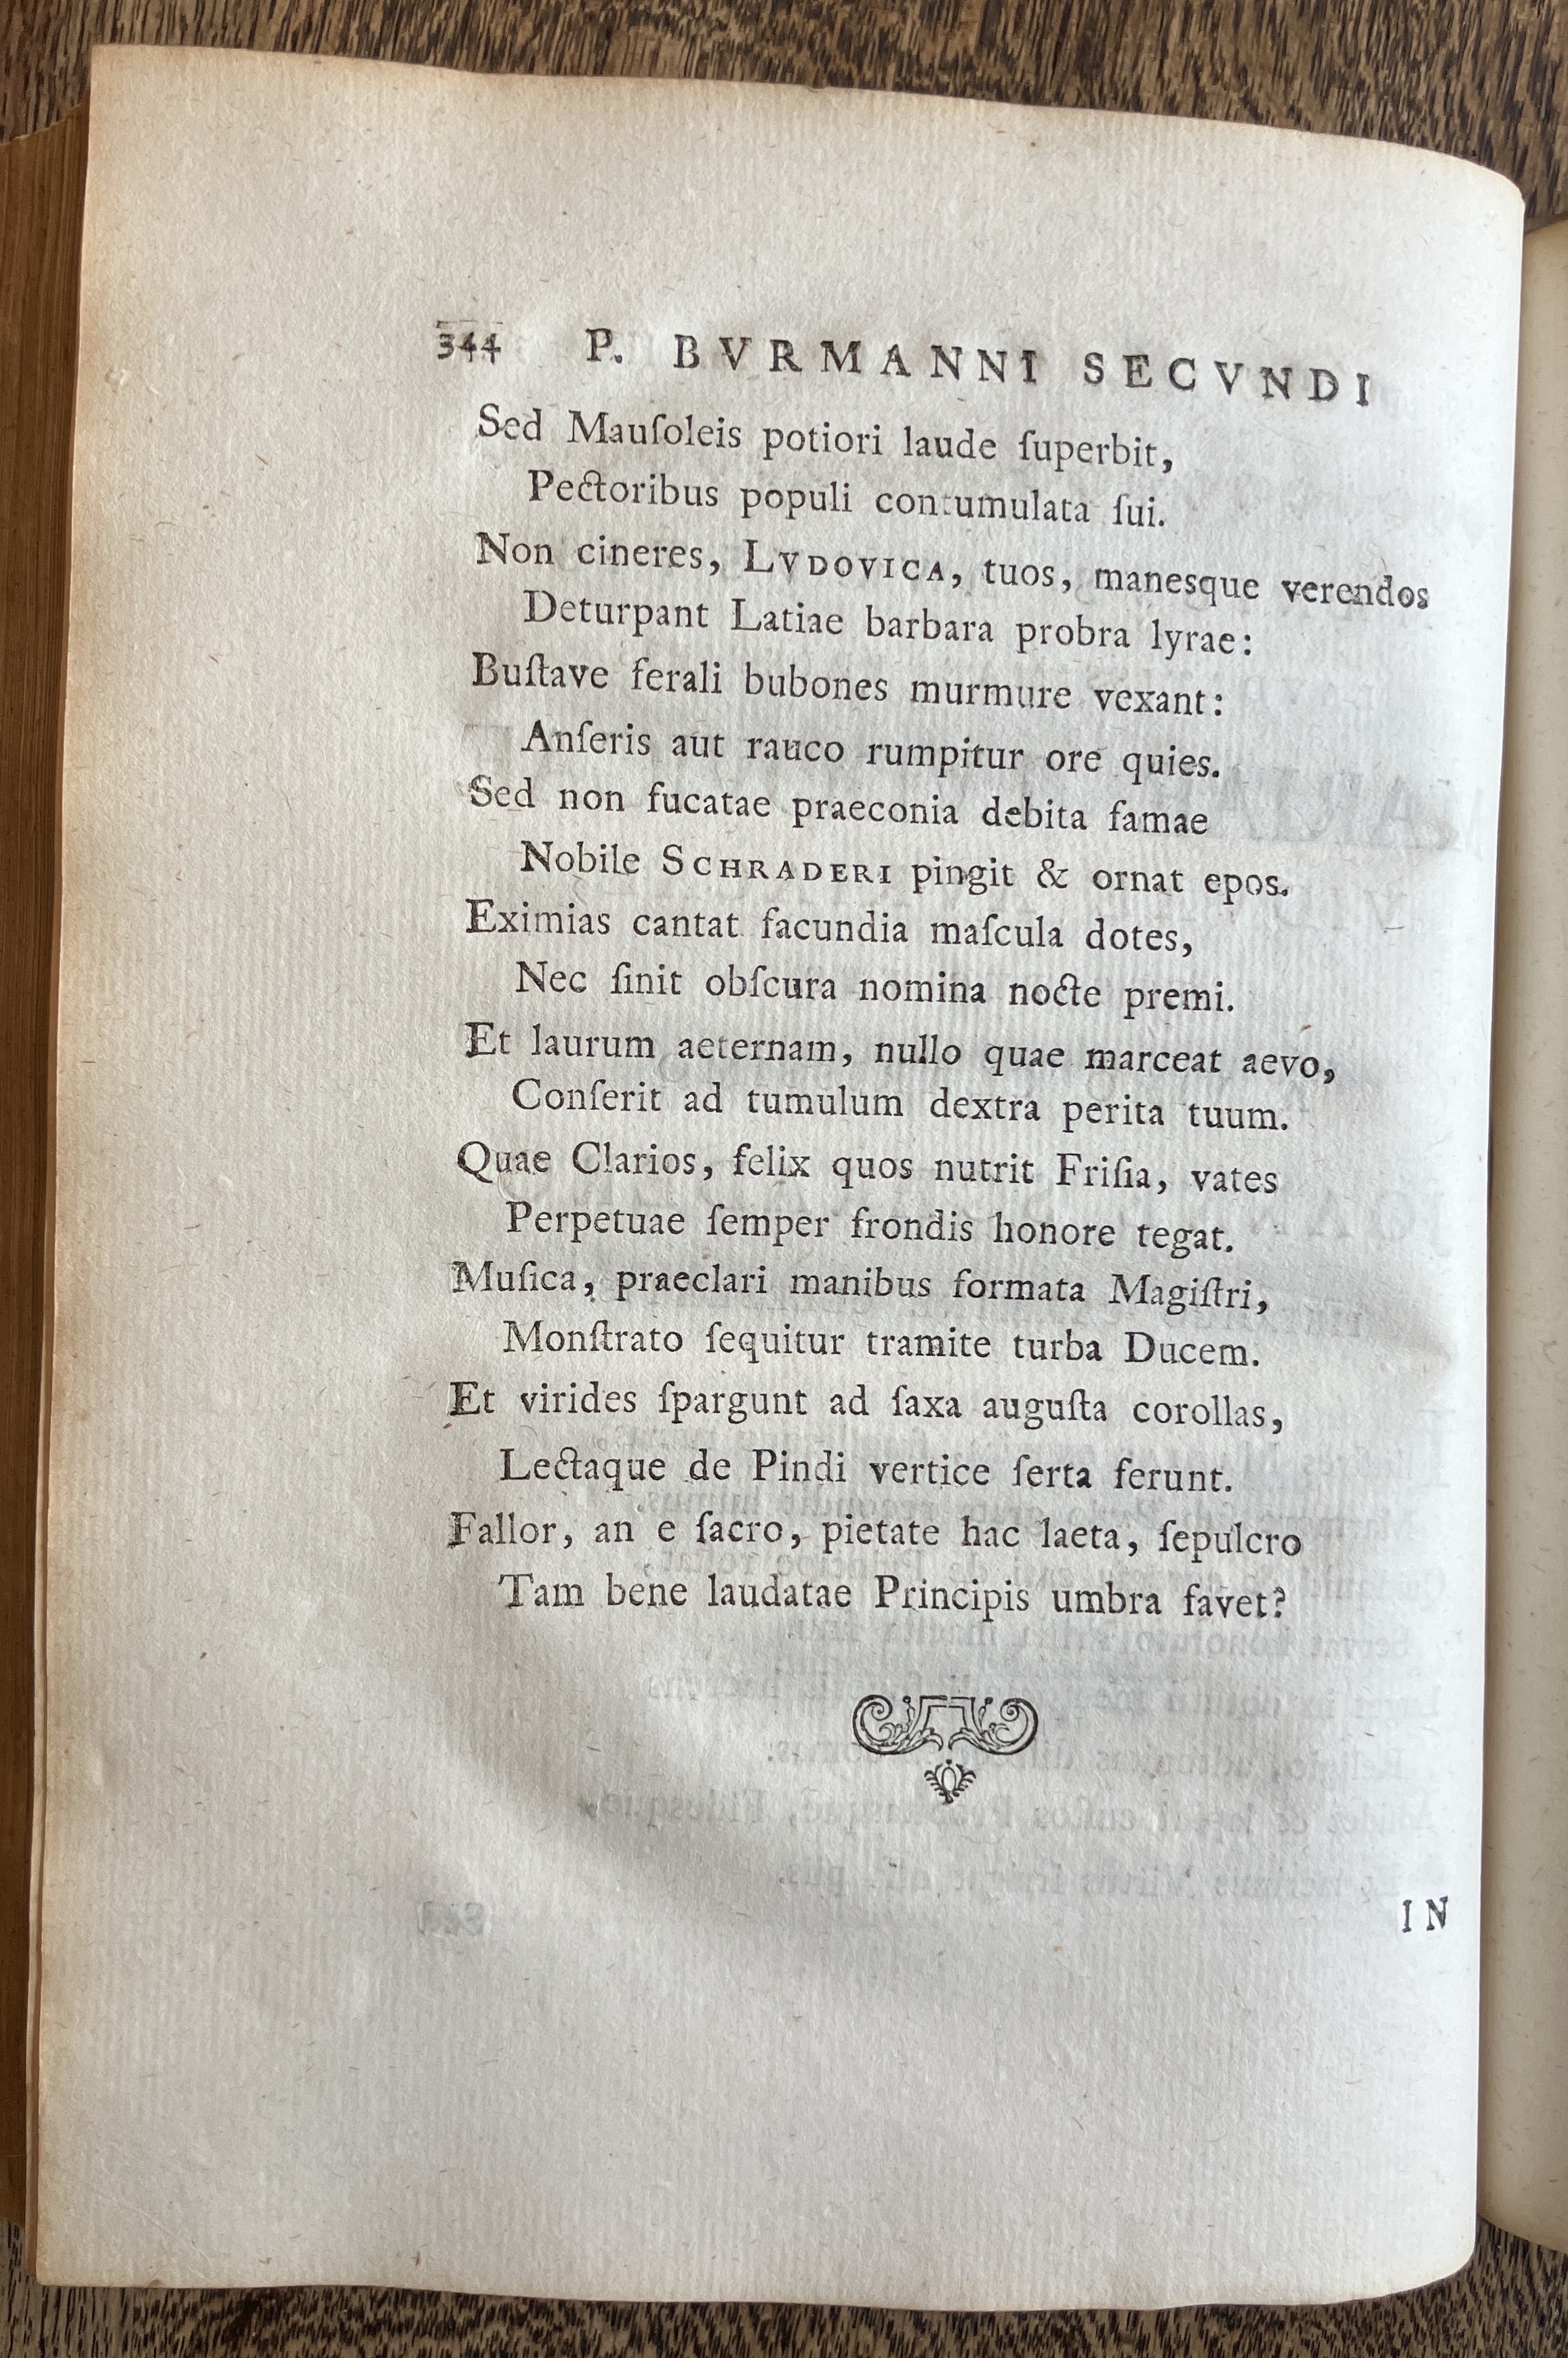 344 P. BVRMANNI SECVNDI
Sed Mauſoleis potiori laude ſuperbit,
Pectoribus populi contumulata ſui.
Non cineres, LVDOVICA, tuos, manesque verendos
Deturpant Latiae barbara probra lyrae:
Buſtave ferali bubones murmure vexant:
Anſeris aut rauco rumpitur ore quies.
Sed non fucatae praeconia debita famae
Nobile SCHRADERI pingit & ornat epos.
Eximias cantat facundia maſcula dotes,
Nec ſinit obſcura nomina nocte premi.
Et laurum aeternam, nullo quae marceat aevo,
Conſerit ad tumulum dextra perita tuum.
Quae Clarios, felix quos nutrit Friſia, vates
Perpetuae ſemper frondis honore tegat.
Muſica, praeclari manibus formata Magiſtri,
Monſtrato ſequitur tramite turba Ducem.
Et virides ſpargunt ad ſaxa auguſta corollas,
Lectaque de Pindi vertice ſerta ferunt.
Fallor, an e ſacro, pietate hac laeta, ſepulcro
Tam bene laudatae Principis umbra favet?
IN